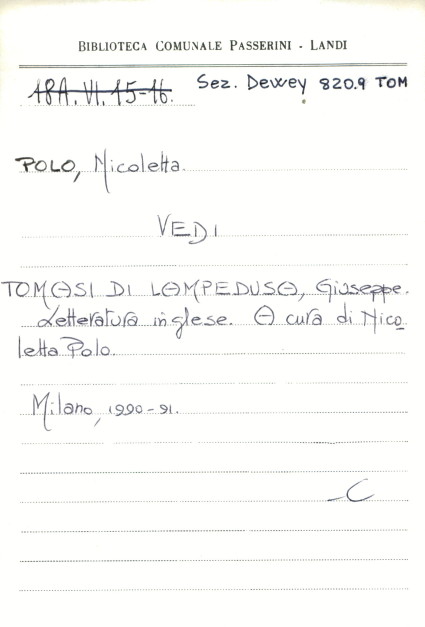 BIBLIOTECA COMUNALE PASSERINI - LANDI
18A. VI. 15-16. Sez. Dewey 820.9 TOM
POLO, Nicoletta.
VEDI
TOMASI DI LAMPEDUSA, Giuseppe.
Letteratura inglese. A cura di Nico
letta Polo.
Milano, 1990-91.
C